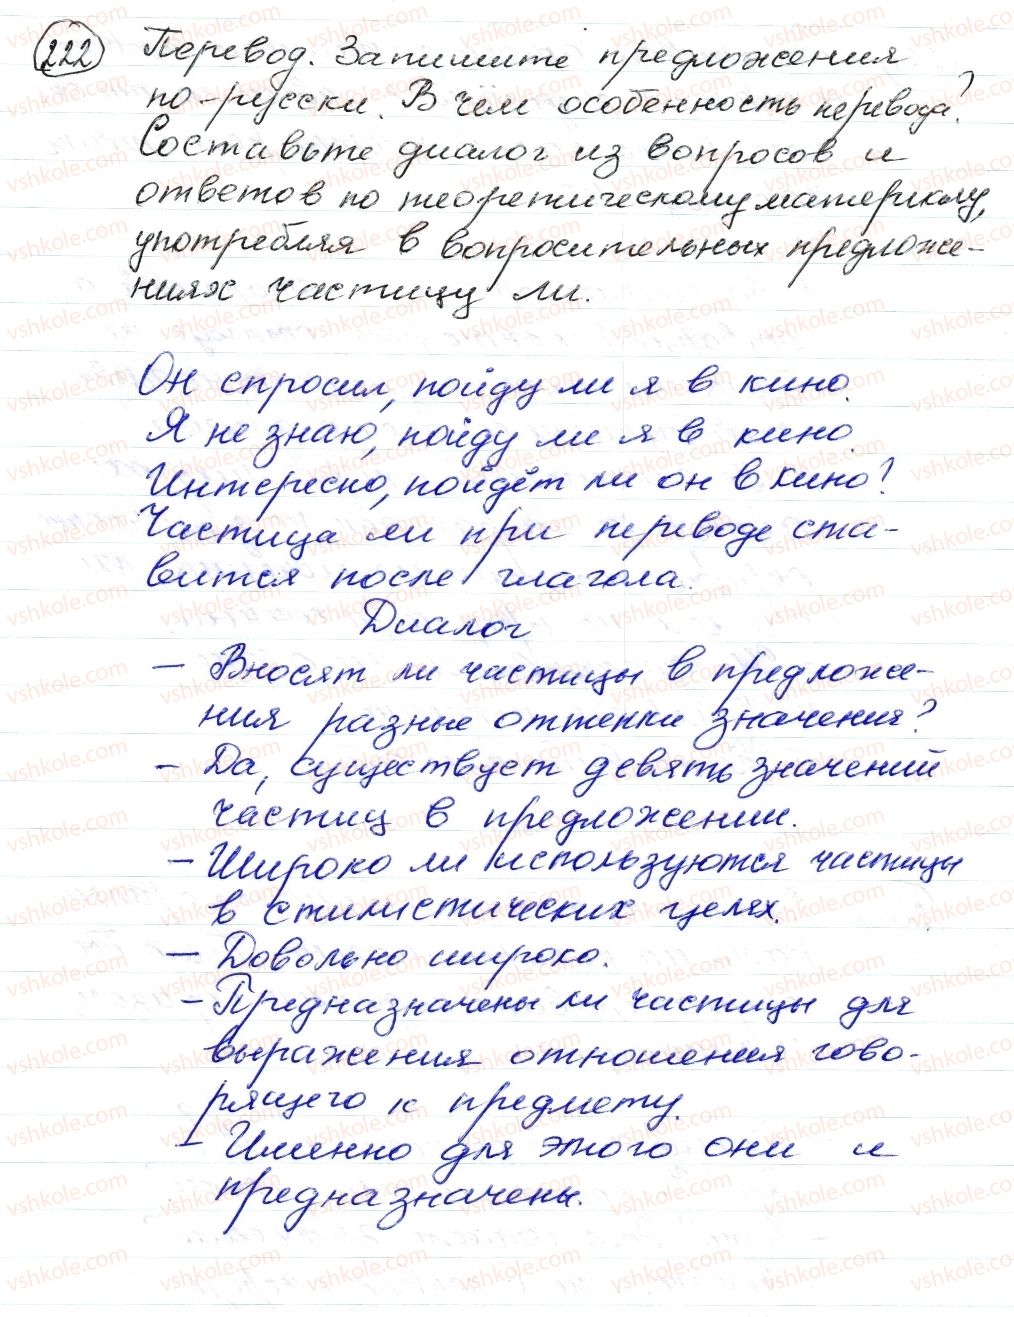 222 Перевод. Запишите предложения
по-русски. В чём особенность перевода?
Составьте диалог из вопросов и
ответов по теоретическому материалу,
употребляя в вопросительных предложе-
ниях частицу ли.
Он спросил, пойду ли я в кино.
Я не знаю, пойду ли я в кино.
Интересно, пойдёт ли он в кино?
Частица ли при переводе ста-
вится после глагола.
Диалог
- Вносят ли частицы в предложе-
ния разные оттенки значения?
- Да, существует девять значений
частиц в предложении.
- Широко ли используются частицы
в стилистических целях.
- Довольно широко.
- Предназначены ли частицы для
выражения отношения гово-
рящего к предмету.
- Именно для этого они и
предназначены.
vshkole.com